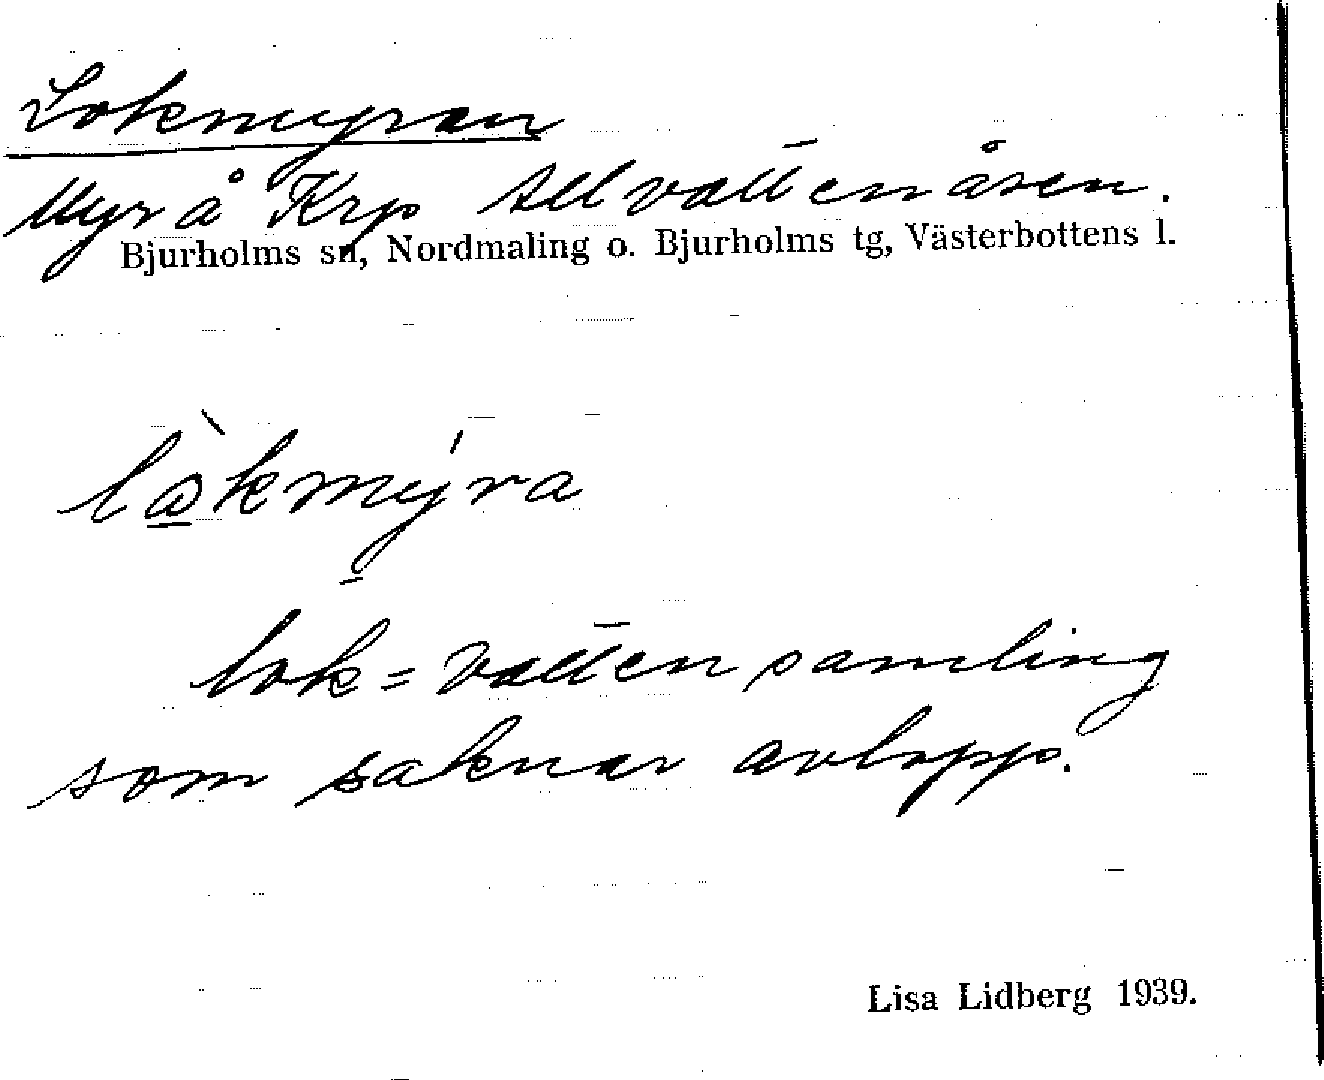 Lokmyran
Myr å Krp Allvattenåsen.
Bjurholms sn, Nordmaling o. Bjurholms tg, Västerbottens l.
lò̱kmý̱ra
lok = vattensamling
som saknar avlopp.
Lisa Lidberg 1939.